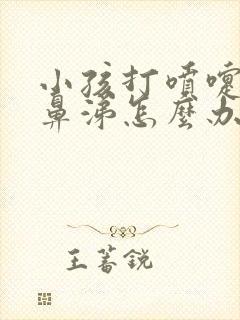 小孩打噴嚏
鼻涕怎麼办
王蓄銳